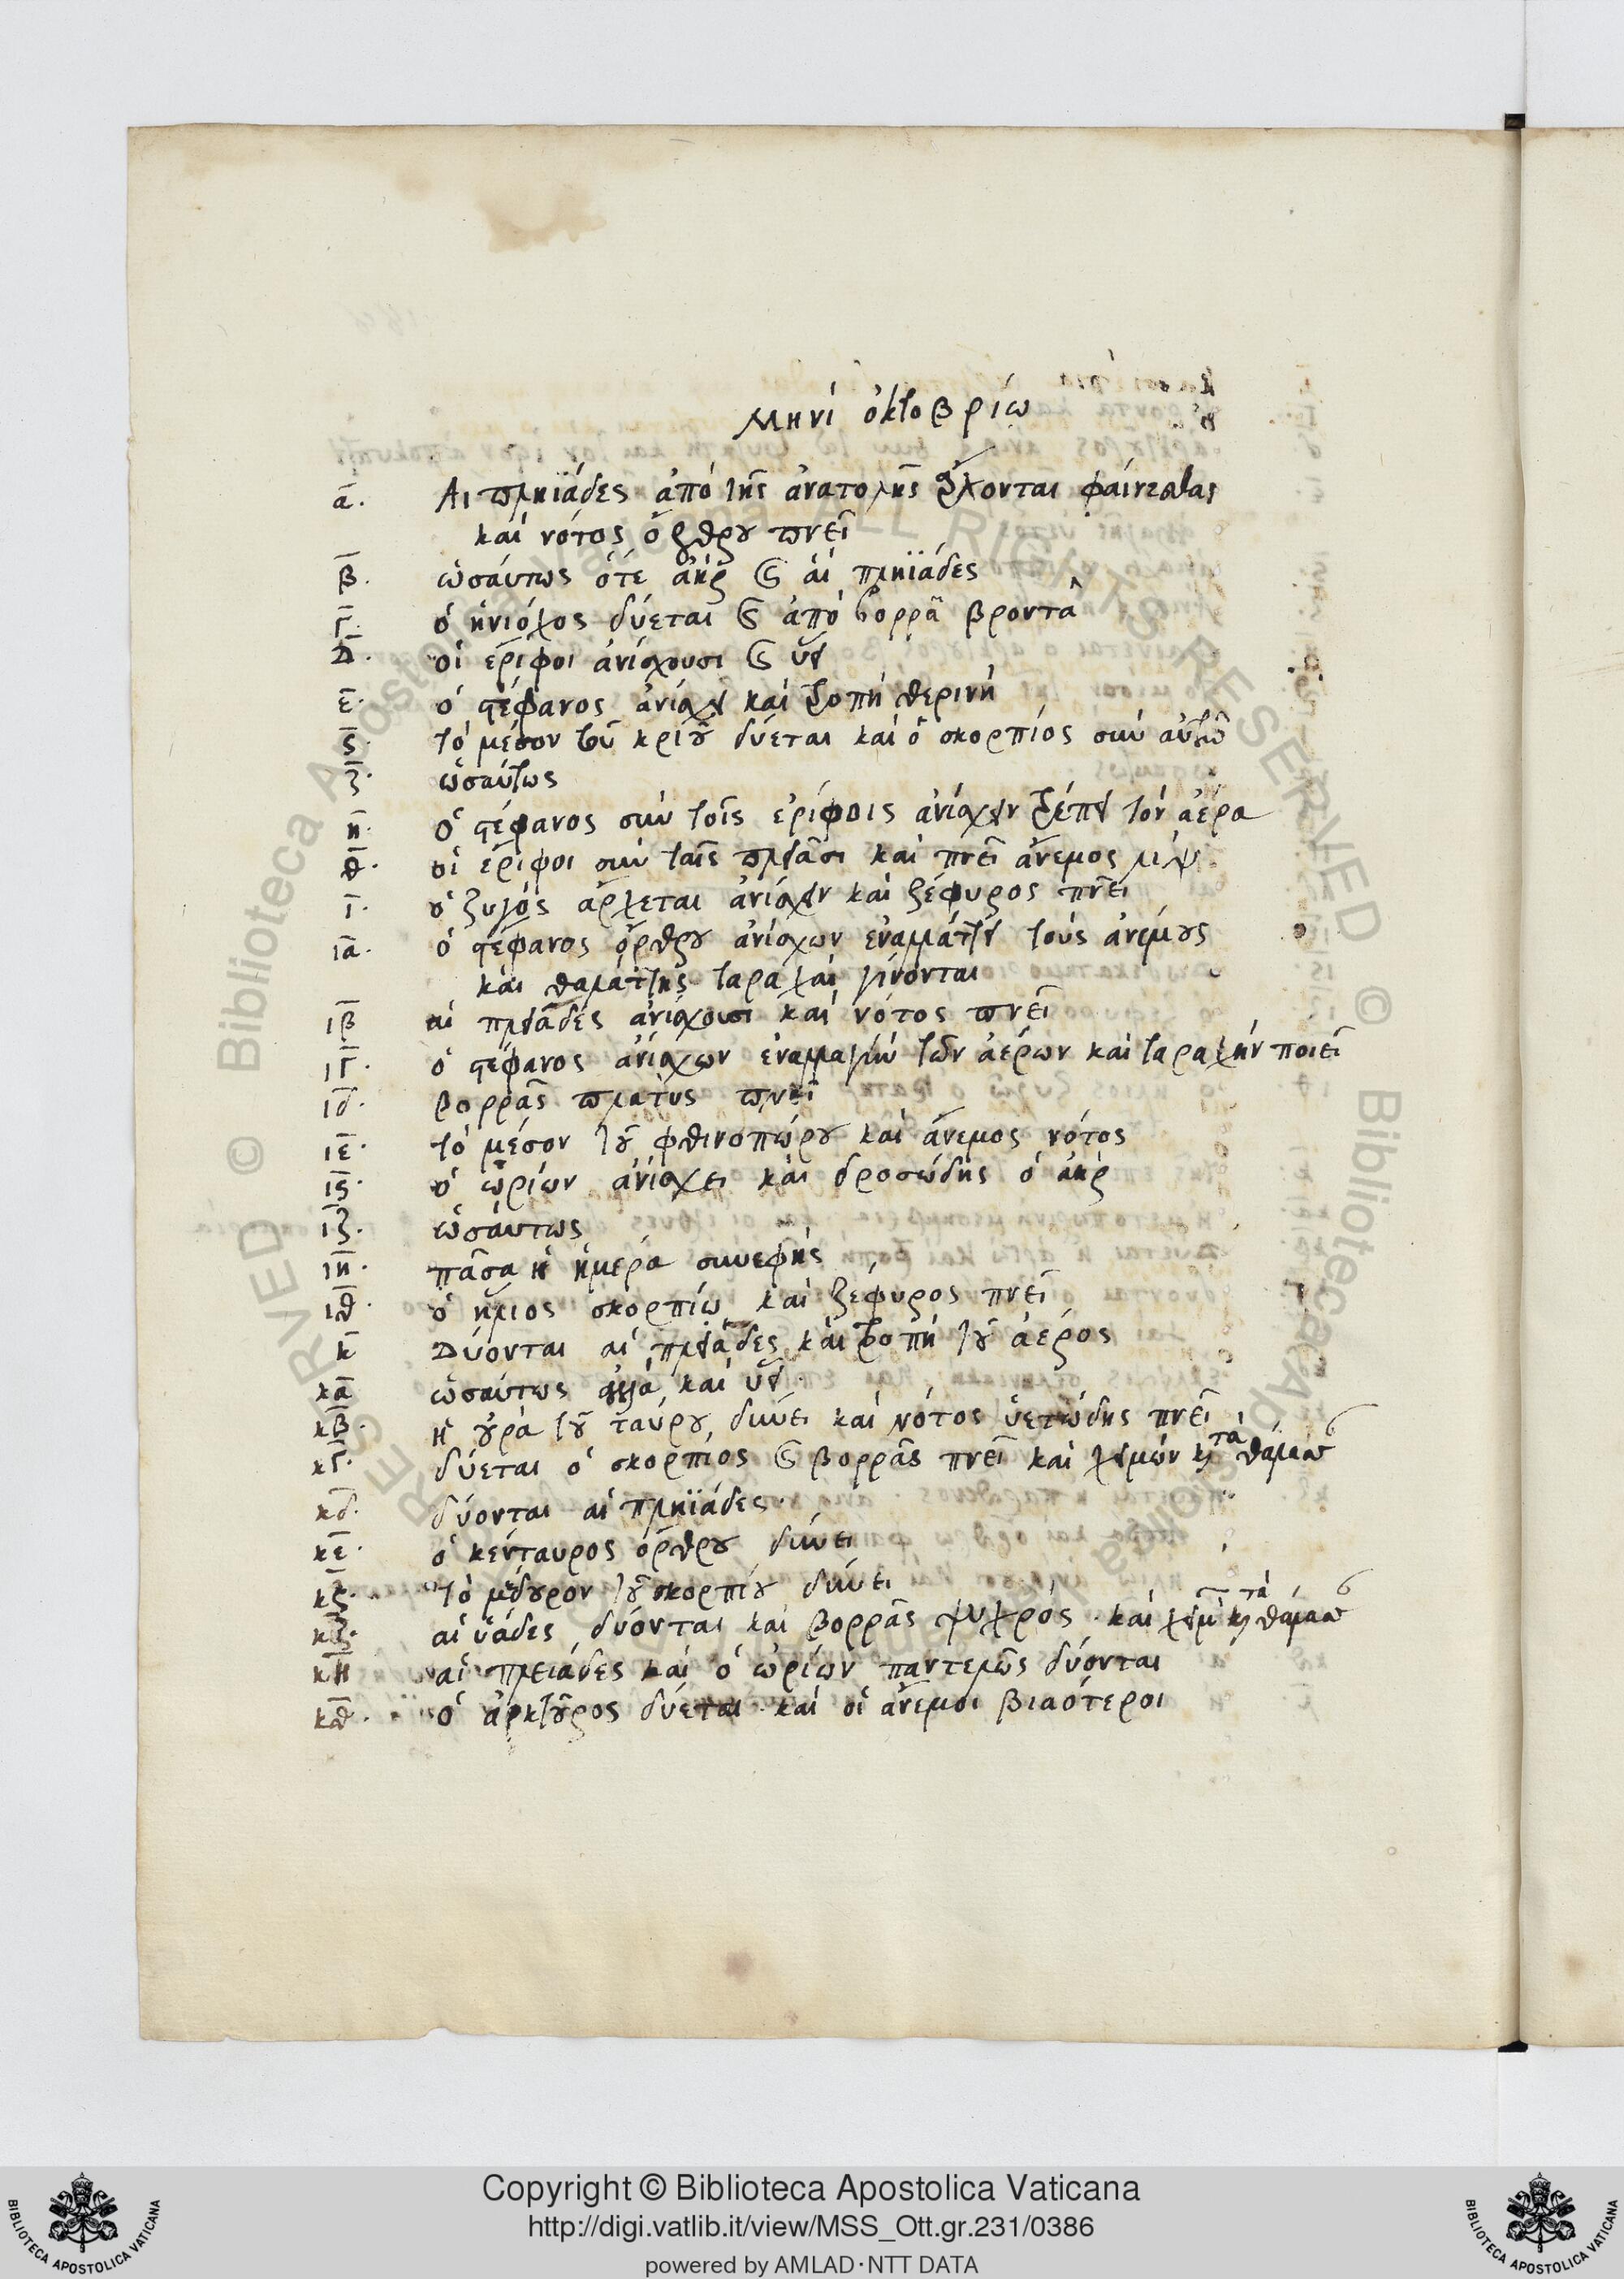 Μηνὶ ὀκτοβρίω
ᾱ. Αἱ πληϊάδες ἀπὸ τῆς ἀνατολῆς ἄρχονται φαίνεσθαι
καὶ νότος ὄρθρου πνεῖ
β̄. ὡσαύτως ὅτε ἀὴρ καὶ αἱ πληϊάδες
γ̄. ὁ ἡνιόχος δύεται καὶ ἀπὸ βορρᾶ βροντᾶ
δ̄. οἱ ἔριφοι ἀνίσχουσι καὶ ὕει
ε̄. ὁ στέφανος ἀνίσχει καὶ τροπὴ θερινή
ϛ̄. τὸ μέσον τοῦ κριοῦ δύεται καὶ ὁ σκορπίος σὺν αὐτῶ
ζ̄. ὡσαύτως
η̄. ὁ στέφανος σὺν τοῖς ἐρίφοις ἀνίσχειν τρέπει τὸν ἀέρα
θ̄. οἱ ἔριφοι σὺν ταῖς πλειᾶσι καὶ πνεῖ ἄνεμος λίψ
ῑ. ὁ ζυγός ἄρχεται ἀνίσχειν καὶ ζέφυρος πνεῖ
ιᾱ. ὁ στέφανος ὄρθρου ἀνίσχων ἐναλλάττει τοὺς ἀνέμους
καὶ θαλάττης ταραχαὶ γίνονται
ιβ̄ αἱ πλειάδες ἀνίσχουσι καὶ νότος πνεῖ
ιγ̄. ὁ στέφανος ἀνίσχων ἐναλλαγὴν τῶν ἀέρων καὶ ταραχὴν ποιεῖ
ιδ̄. βορρᾶς πλατὺς πνεῖ
ιε̄. τὸ μέσον τοῦ φθινοπώρου καὶ ἄνεμος νότος
ιϛ̄. ὁ ὠρίων ἀνίσχει καὶ δροσώδης ὁ ἀὴρ
ιζ̄. ὡσάυτως
ιη̄. πᾶσα ἡ ἡμέρα συνεφής
ιθ̄. ὁ ἥλιος σκορπίω καὶ ζέφυρος πνεῖ
κ̄ Δύονται αἱ πλειάδες καὶ τροπὴ τοῦ ἀέρος
κᾱ ὡσαύτως καὶ ὕει
κβ̄. ἡ οὐρὰ τοῦ ταύρου δύνει καὶ νότος ὑετώδης πνεῖ
κγ̄. δύεται ὁ σκορπίος καὶ βορρᾶς πνεῖ καὶ χειμὼν κατὰ θάλασσ
κδ̄. δύονται αἱ πληϊάδες
κε̄. ὁ κένταυρος ὄρθρου δύνει
κϛ̄. τὸ μέδουρον τοῦ σκορπίου δύνει
κζ̄. αἱ ὑάδες δύονται καὶ βορρᾶς ψυχρός. καὶ χειμ κατὰ θάλασσ
κη̄ αἱ πλειάδες καὶ ὁ ὠρίων παντελῶς δύονται
κθ̄. ὁ ἀρκτοῦρος δύεται καὶ οἱ ἄνεμοι βιαότεροι
© Biblioteca Apostolica Vaticana ALL RIGHTS RESERVED
Copyright © Biblioteca Apostolica Vaticana
http://digi.vatlib.it/view/MSS_Ott.gr.231/0386
powered by AMLAD·NTT DATA
BIBLIOTECA APOSTOLICA VATICANA
BIBLIOTECA APOSTOLICA VATICANA